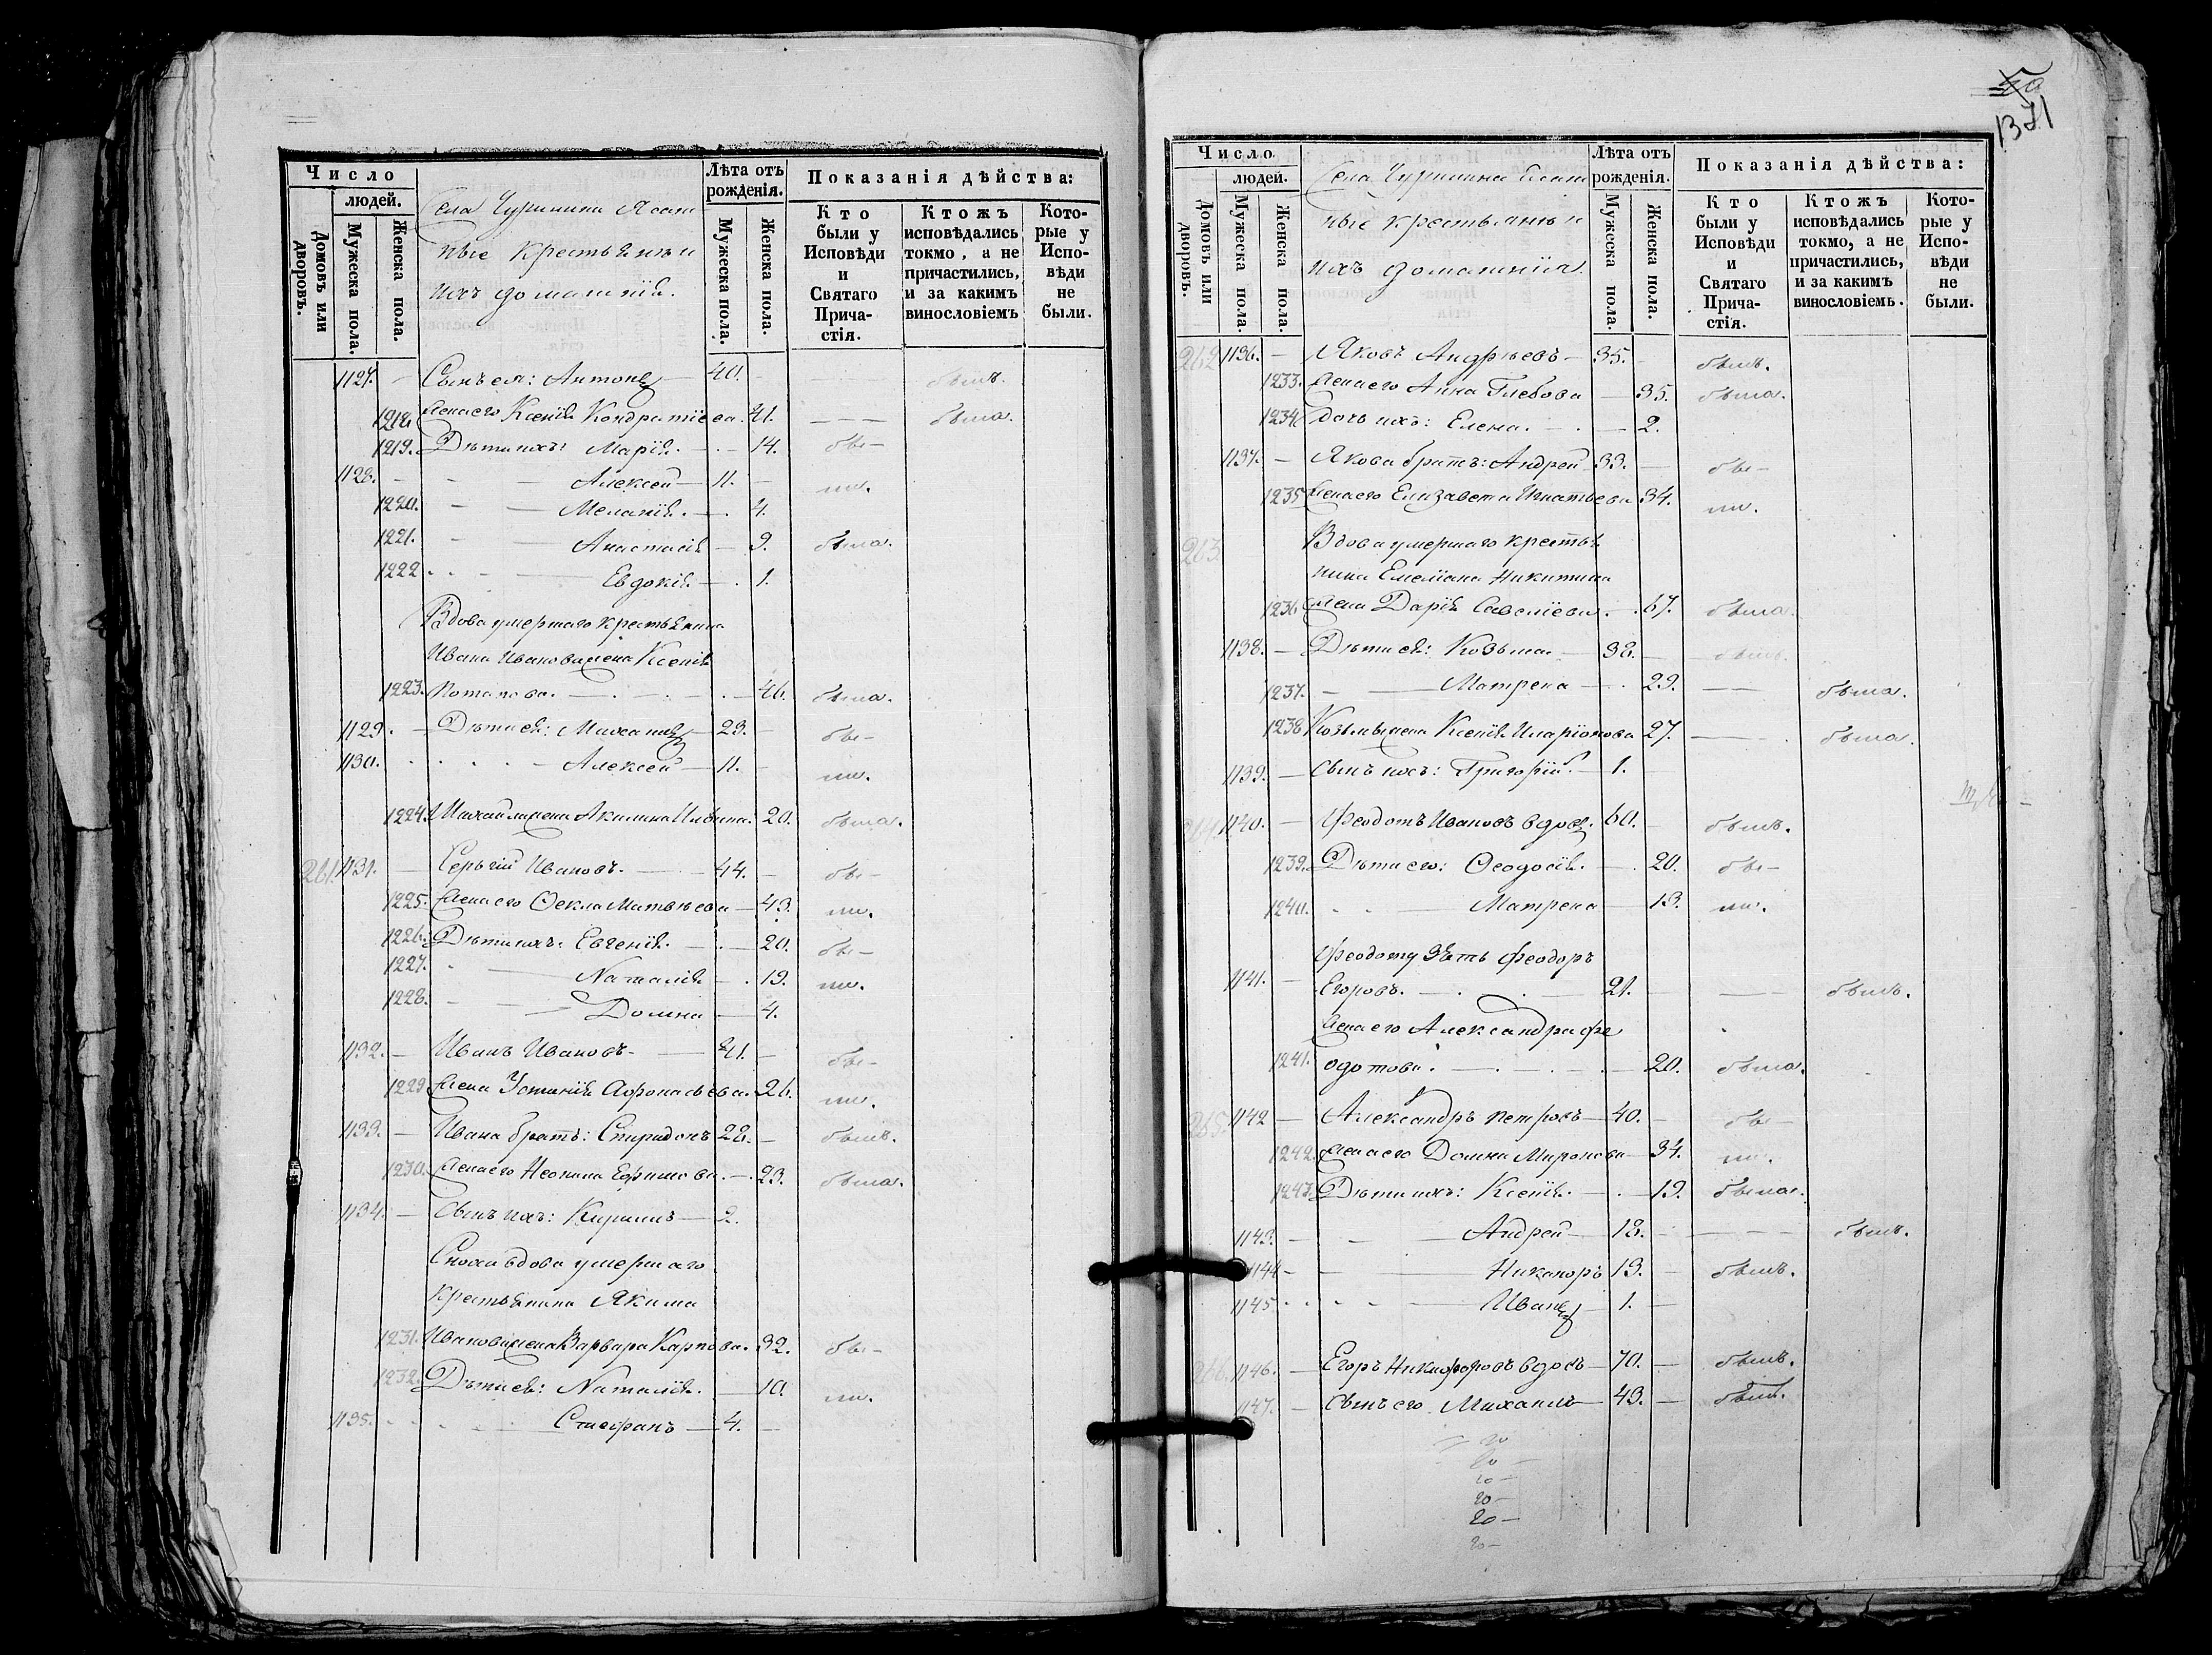 Число
людей.
Домовъ или дворовъ.
Мужеска пола.
Женска пола.
Села Чурилина Ясаш
ные крестьяне и
ихъ домашнія.
Лѣта отъ рожденія.
Мужеска пола.
Женска пола.
Показанія дѣйства:
Кто были у Исповѣди и Святаго Причастія.
Ктожъ исповѣдались токмо, а не причастились, и за какимъ винословіемъ
Которые у Исповѣди не были.
1127. — Сынъ ея: Антонъ — 40. — былъ.
1218. Жена его Ксенія Кондратіева. 41. — — была.
1219. Дѣти ихъ: Марія. — 14. бы—
1128. — Алексей — 11. — ли.
1220. — Меланія. — 4.
1221. — Анастасія — 9. была.
1222. — Евдокія — 1.
Вдова умершаго крестьянина
Ивана Иванова жена Ксенія
1223. Потапова. — 46. была.
1129. — Дѣти ея: Михаилъ — 23. — бы—
1130. — Алексей — 11. — ли.
1224. Михайла жена Акилина Ильина. 20. была.
261. 1131. — Сергѣй Ивановъ. — 44. — бы—
1225. Жена его Ѳекла Матвѣева — 43. ли.
1226. Дѣти ихъ: Евгенія. — 20. бы—
1227. — Наталія — 19. ли.
1228. — Домна — 4.
1132. — Иванъ Ивановъ — 41. — бы—
1229. Жена Устинія Афонасьева. 26. ли.
1133. — Ивана братъ: Спиридонъ 28. — былъ.
1230. Жена его Неонила Ефимова. — 23. была.
1134. — Сынъ ихъ: Кирилъ — 2.
Сноха вдова умершаго
крестьянина Якима
1231. Иванова жена Варвара Карпова. 32. бы—
1232. Дѣти ея: Наталія. — 10. ли.
1135. — Стефанъ — 4. —
1381
Число
людей.
Домовъ или дворовъ.
Мужеска пола.
Женска пола.
Села Чурилина Ясаш
ные крестьяне и
ихъ домашнія.
Лѣта отъ рожденія.
Мужеска пола.
Женска пола.
Показанія дѣйства:
Кто были у Исповѣди и Святаго Причастія.
Ктожъ исповѣдались токмо, а не причастились, и за какимъ винословіемъ.
Которые у Исповѣди не были.
262 1136. — Яковъ Андрѣевъ — 35. былъ.
1233. Жена его Анна Глебова — 35. была.
1234. Дочь ихъ: Елена. — 2.
1137. — Якова братъ: Андрей 33. — бы—
1235. Жена его Елизавета Игнатьева 34. ли.
263 Вдова умершаго крестья
нина Емеліана Никитина
1236. Жена Дарія Савеліева. — 67. была.
1138. — Дѣти ея: Козьма — 38. — былъ.
1237. — Матрена — 29. — — была.
1238. Козьмы жена Ксенія Иларіонова 27. — была.
1139. — Сынъ ихъ: Григорій. — 1.
264 1140. — Феодотъ Ивановъ вдов. 60. — былъ.
1239. Дѣти его: Ѳеодосія. — 20. бы—
1240. — Матрена — 13. ли.
Феодоту зять Феодоръ
1141. — Егоровъ. — 21. — — былъ.
Жена его Александра Фе
1241. одотова. — 20. была.
265 1142 — Александръ Петровъ — 40. — бы—
1242. Жена его Домна Миронова — 34. ли.
1243. Дѣти ихъ: Ксенія. — 19. была.
1143. — Андрей — 18. — — былъ.
1144 — Никаноръ 13. — былъ.
1145 — Иванъ — 1. —
266. 1146. — Егоръ Никифоровъ вдовъ — 70. — былъ.
1147. — Сынъ его Михаилъ — 43. — былъ.
20
20 —
20 —
20 —
20 —
20 —